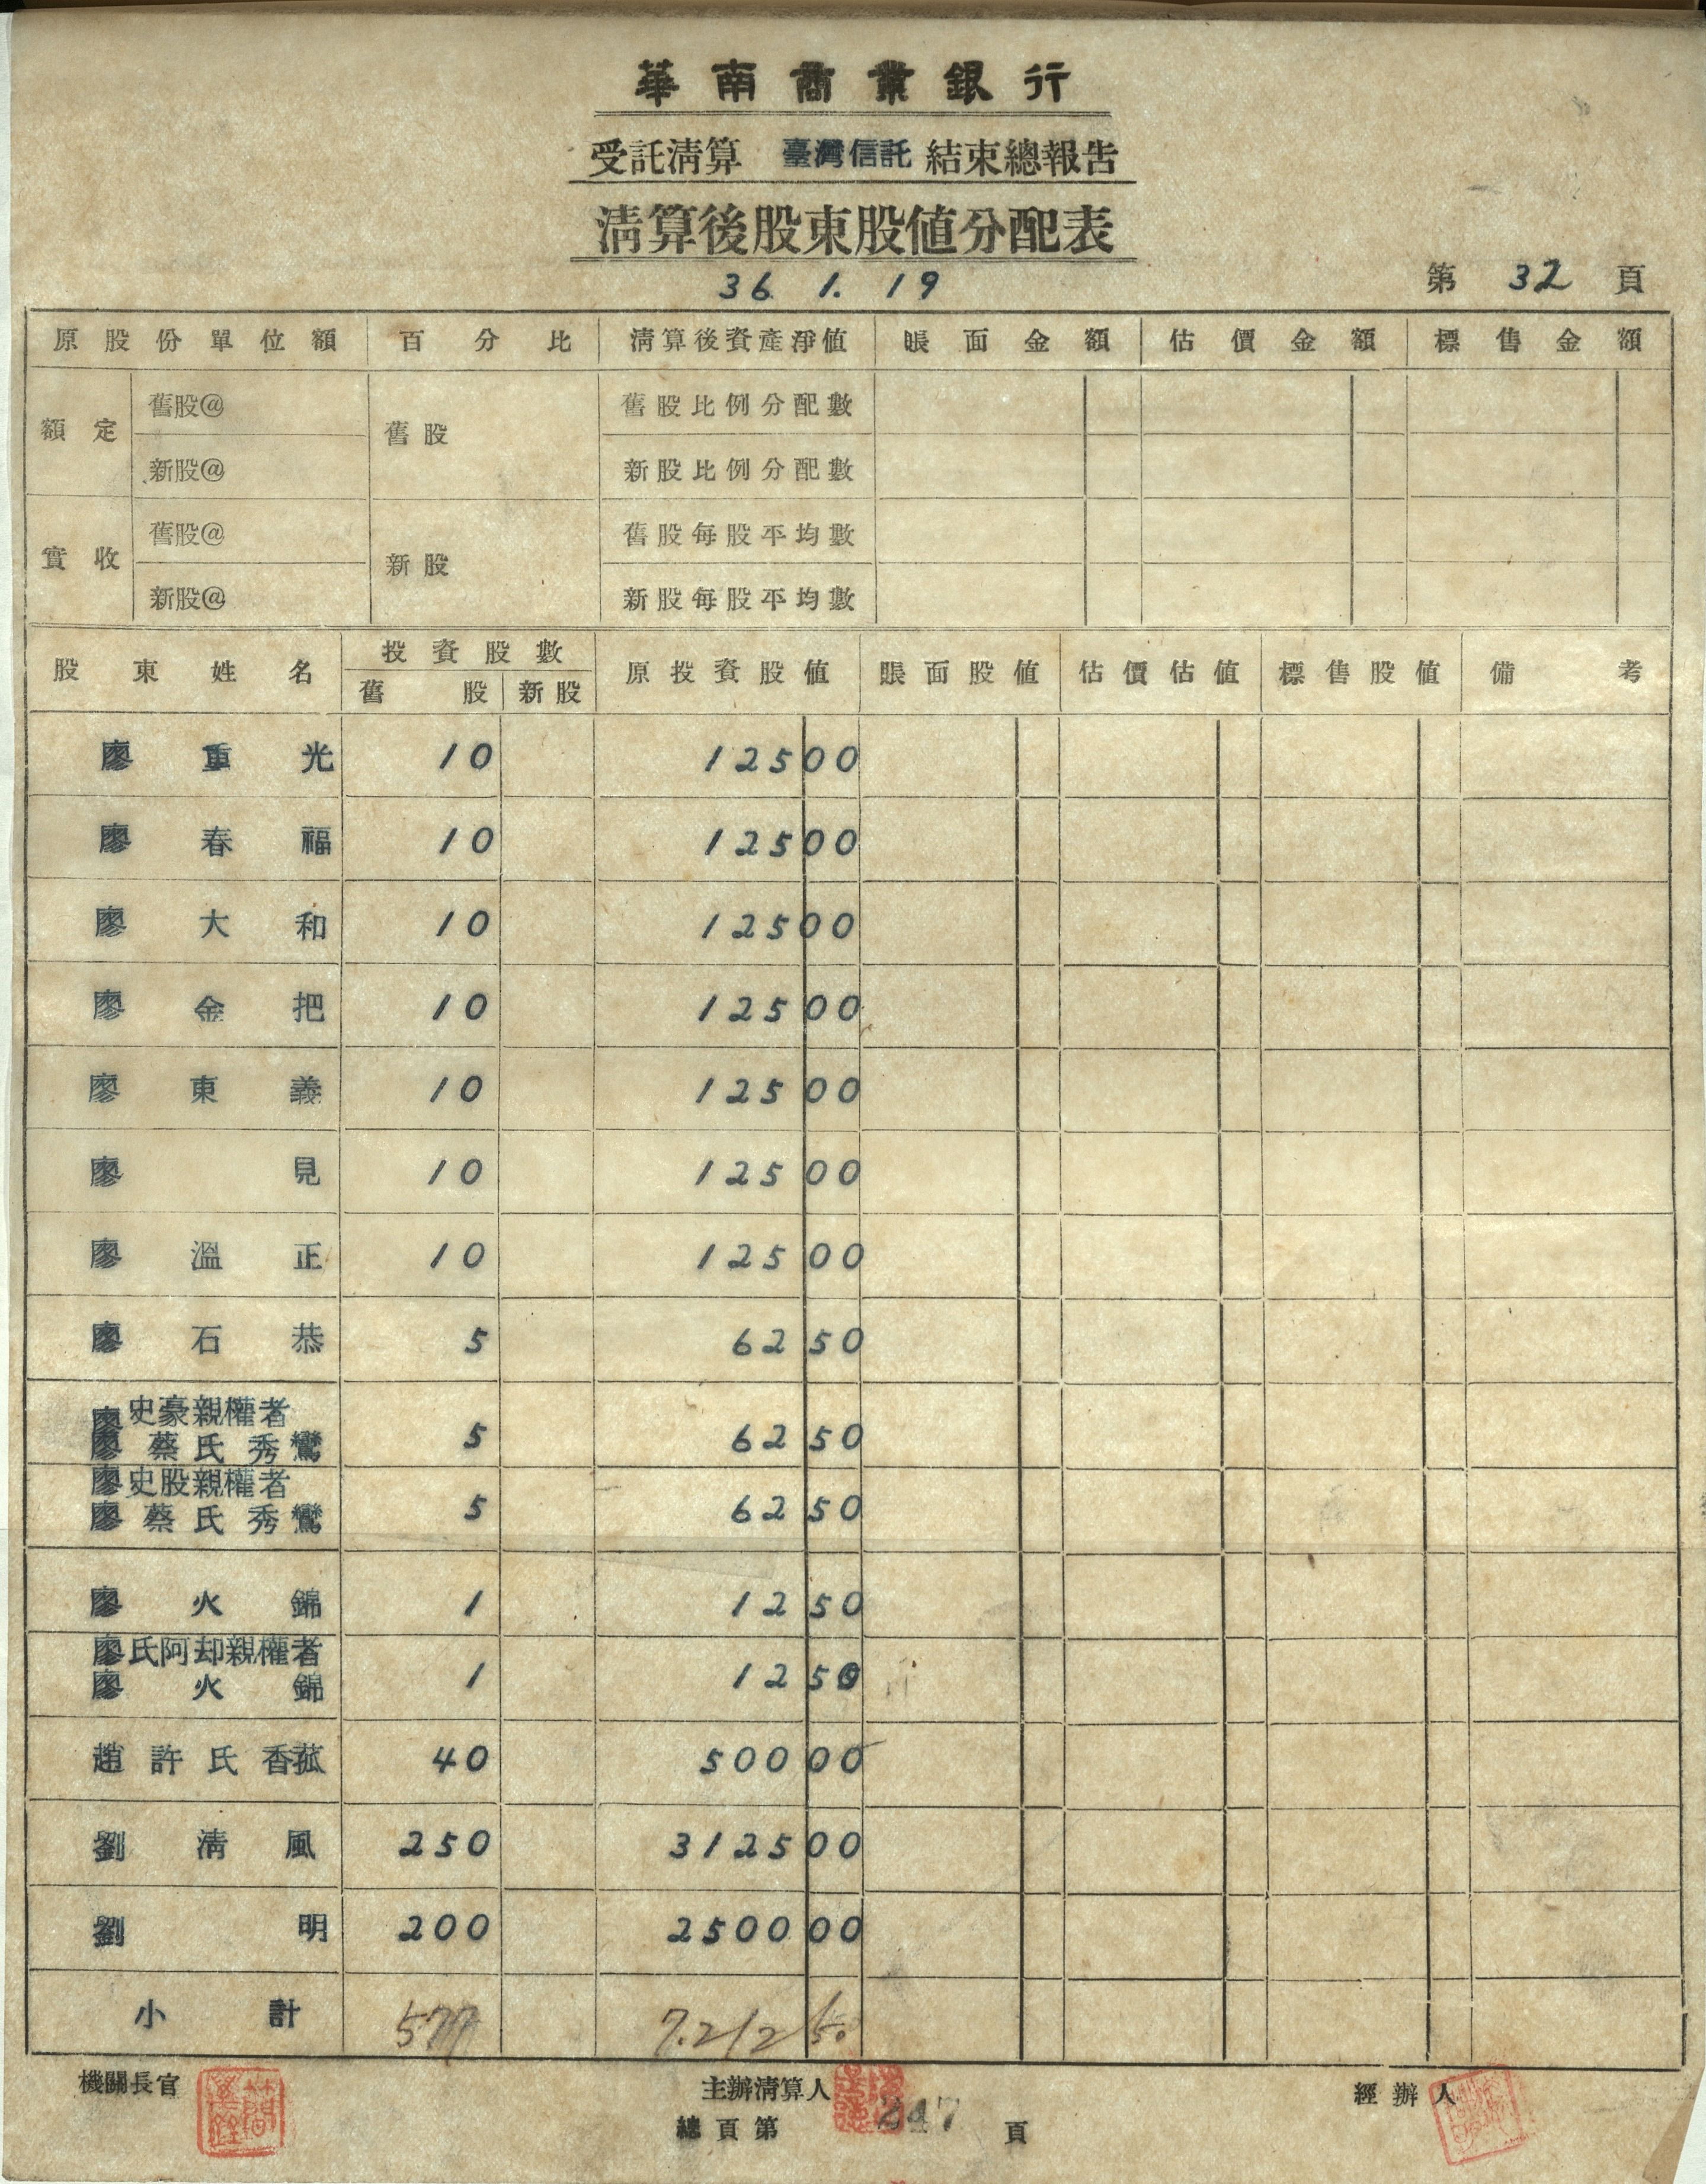 華南商業銀行
受託清算 臺灣信託 結束總報告
清算後股東股値分配表
36. 1. 19
第 32 頁
原股份單位額 百分比 清算後資產淨値 賬面金額 估價金額 標售金額
額定 舊股@ 舊股 舊股比例分配數
新股@ 新股比例分配數
實收 舊股@ 新股 舊股每股平均數
新股@ 新股每股平均數
股東姓名 投資股數 原投資股値 賬面股値 估價估値 標售股値 備考
舊股 新股
廖重光 10 125 00
廖春福 10 125 00
廖大和 10 125 00
廖金把 10 125 00
廖東義 10 125 00
廖見 10 125 00
廖溫正 10 125 00
廖石恭 5 62 50
廖史豪親權者
廖蔡氏秀鸞 5 62 50
廖史股親權者
廖蔡氏秀鸞 5 62 50
廖火錦 1 12 50
廖氏阿却親權者
廖火錦 1 12 50
趙許氏香菰 40 500 00
劉清風 250 3125 00
劉明 200 2500 00
小計 577 7.212 50
機關長官 主辦清算人 經辦人
總頁第 247 頁